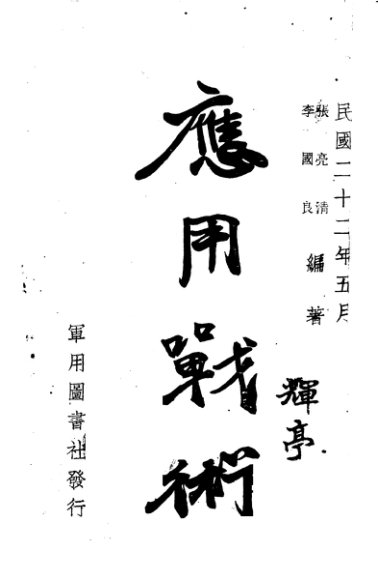 民國二十二年五月
張亮清
李國良
編著
應用戰術
輝亭
軍用圖書社發行